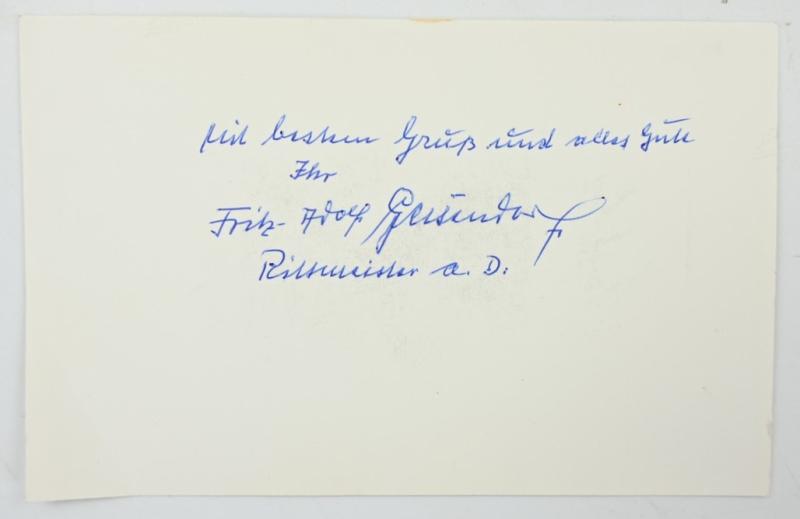 Mit bestem Gruß und alles Gute
Ihr
Fritz-Adolf Geisendorf
Rittmeister a. D.